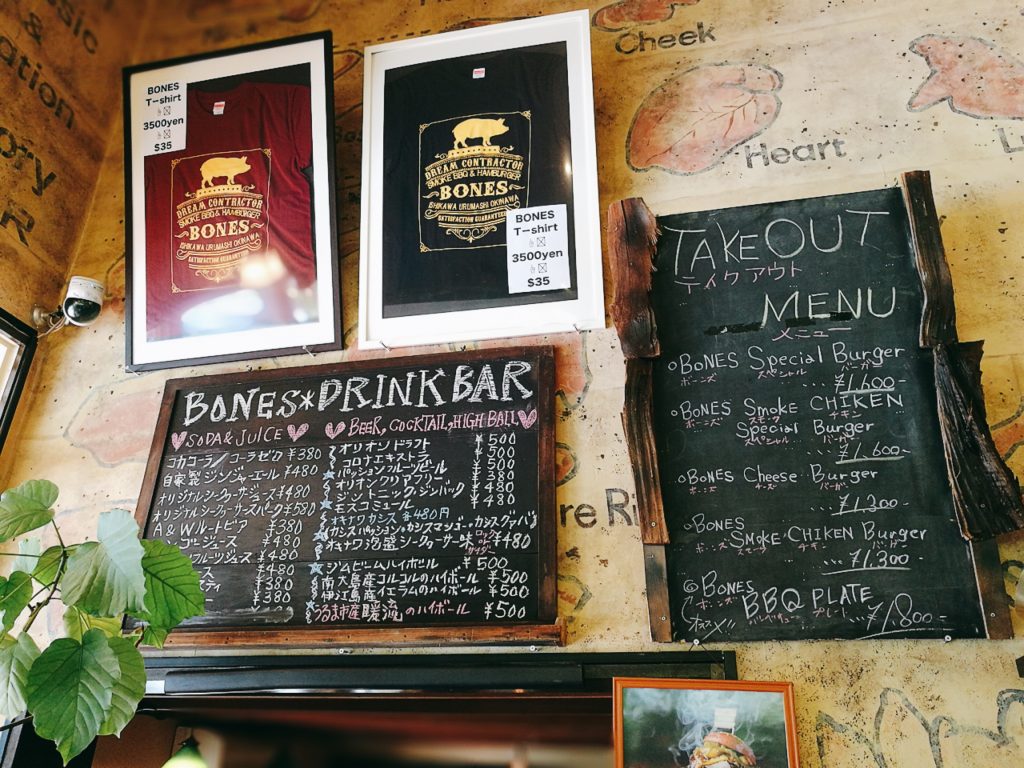 Cheek
Heart
BONES
T-shirt
3500yen
$35
DREAM CONTRACTOR
SMOKE BBQ & HAMBURGER
BONES
ISHIKAWA URUMASHI OKINAWA
SATISFACTION GUARANTEED
DREAM CONTRACTOR
SMOKE BBQ & HAMBURGER
BONES
ISHIKAWA URUMASHI OKINAWA
SATISFACTION GUARANTEED
BONES
T-shirt
3500yen
$35
BONES*DRINK BAR
SODA & JUICE
コカコーラ/コーラゼロ ¥380
自家製 ジンジャーエール ¥480
オリジナルシークヮーサージュース ¥480
オリジナルシークヮーサースパーク ¥580
A&Wルートビア ¥380
ゴージュース ¥480
フルーツジュース ¥480
¥380
ティ ¥380
BEER, COCKTAIL, HIGH BALL
オリオンドラフト ¥500
コロナエキストラ ¥500
パッションフルーツビール ¥500
オリオンクリアフリー ¥380
ジントニック・ジンバック ¥480
モスコミュール ¥480
オキナワカシス 各480円
オキナワ泡盛シークヮーサー味 ¥480
ジムビームハイボール ¥500
南大島産コルコルのハイボール ¥500
伊江島産イエラムのハイボール ¥500
うるま市産暖流のハイボール ¥500
TAKEOUT
テイクアウト
MENU
メニュー
BONES Special Burger
ボーンズ スペシャル バーガー
¥1,600-
BONES Smoke CHICKEN
ボーンズ スモーク チキン
Special Burger
スペシャル バーガー
¥1,600-
BONES Cheese Burger
ボーンズ チーズ バーガー
¥1,300-
BONES
Smoke CHIKEN Burger
ボーンズ スモーク チキン バーガー
¥1,300-
BONES
ボーンズ
BBQ PLATE
バーベキュー プレート
オススメ!!
¥1,800-